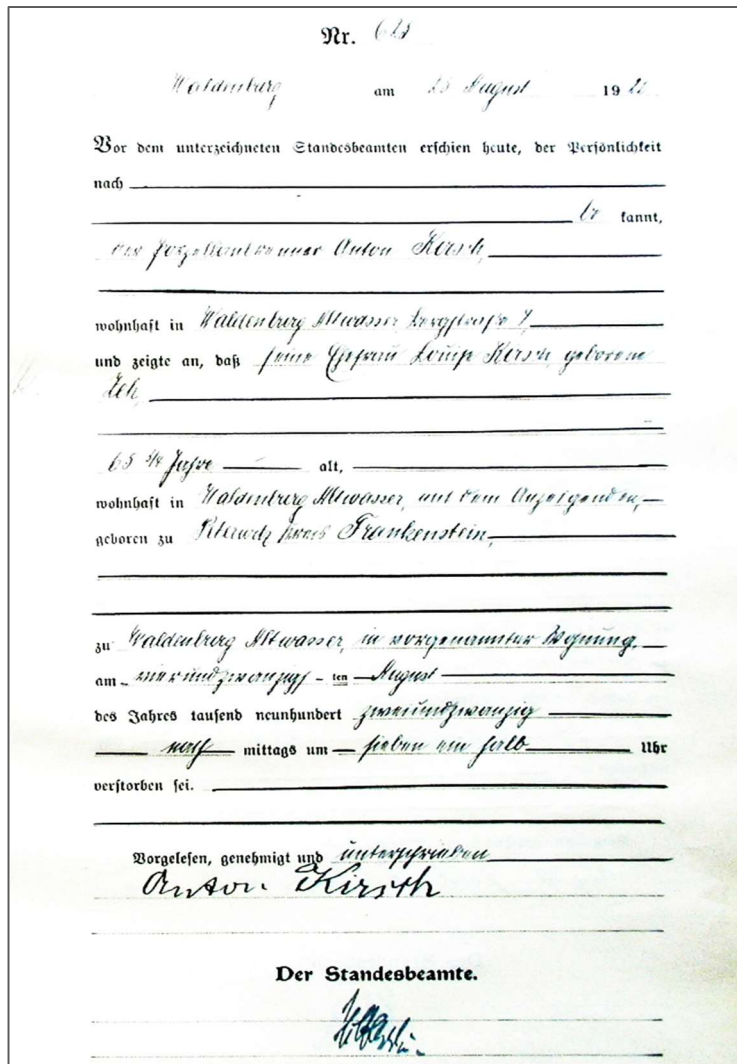 Nr. 628
Waldenburg am 25 August 19 22
Vor dem unterzeichneten Standesbeamten erschien heute, der Persönlichkeit
nach
be kannt,
der Porzellanbrenner Anton Kirsch,
wohnhaft in Waldenburg Altwasser Bergstraße 7,
und zeigte an, daß seine Ehefrau Louise Kirsch, geborene
Zeh,
65 3/4 Jahre alt,
wohnhaft in Waldenburg Altwasser, mit dem Anzeigenden,
geboren zu Kreis Frankenstein,
zu Waldenburg Altwasser, in vorgenannter Wohnung,
am vierundzwanzigs - ten August
des Jahres tausend neunhundert zweiundzwanzig
nach mittags um sieben ein halb Uhr
verstorben sei.
Vorgelesen, genehmigt und unterschrieben
Anton Kirsch
Der Standesbeamte.